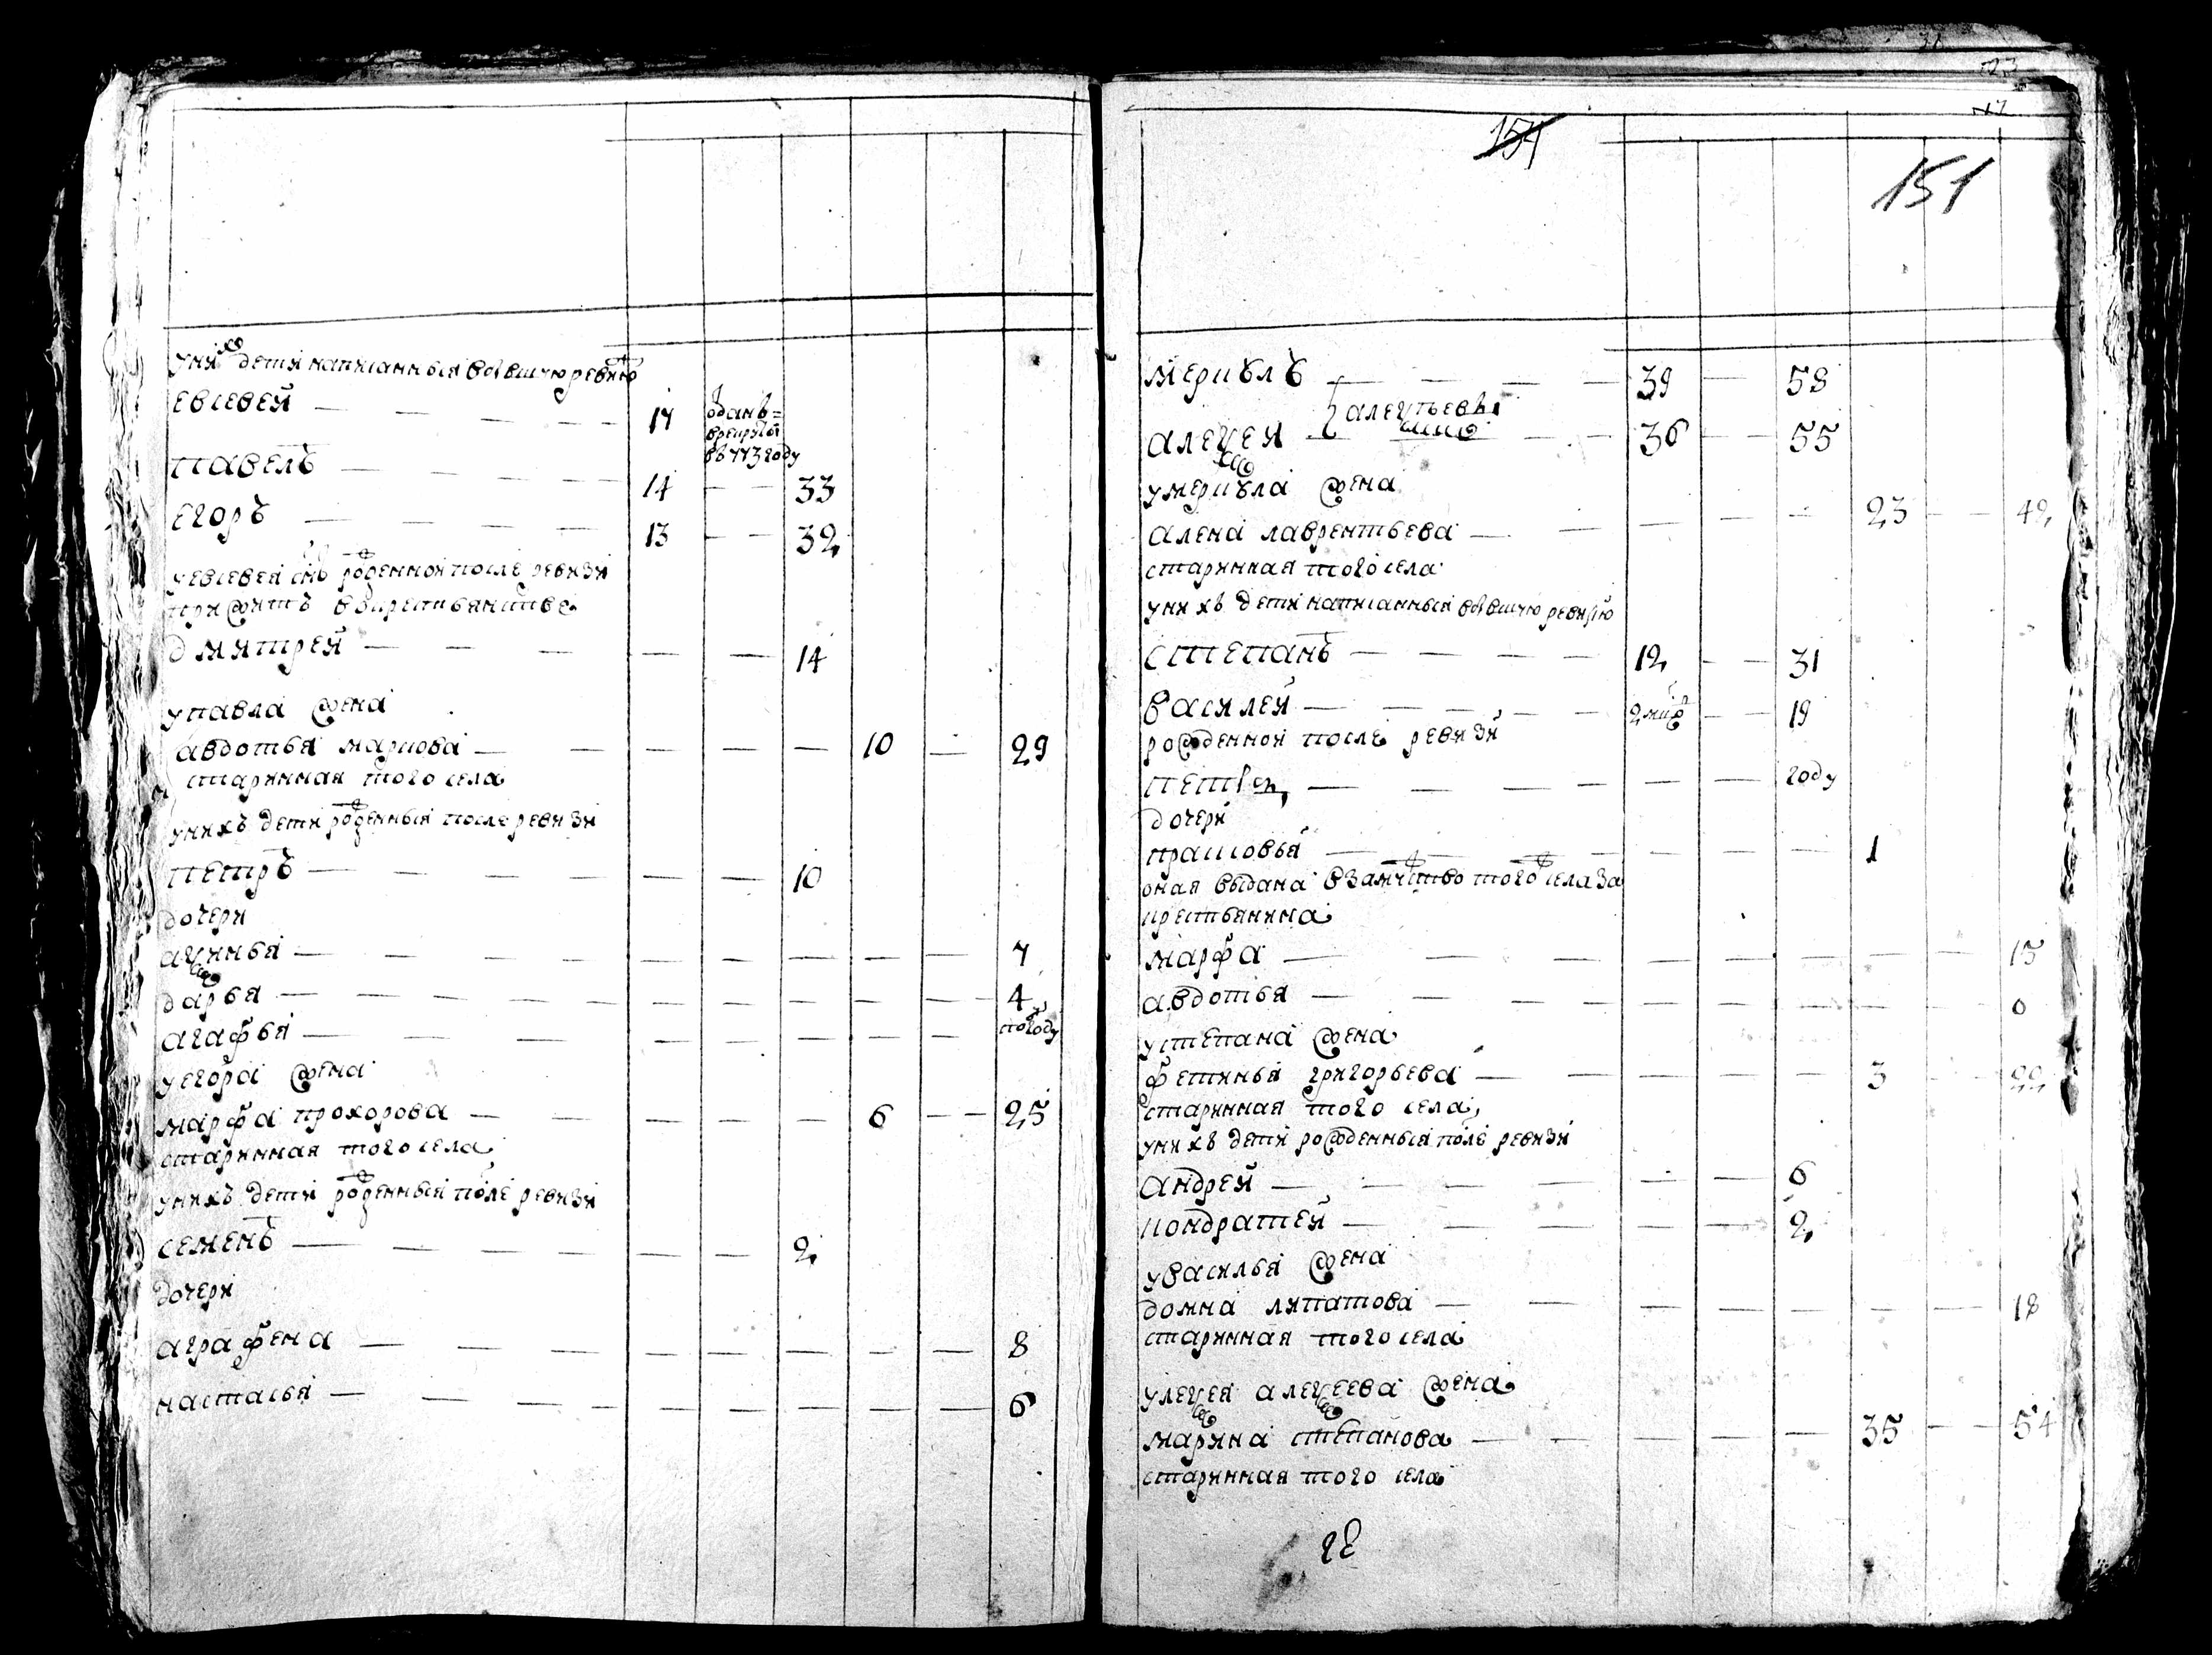 у них дети написанныя в бывшую ревизию
евсевей — — — — 17 отданъ=
в рекруты
в 773 году
павелъ — — — — 14 — — 33
егоръ — — — — 13 — — 32
у евсевея снъ рожденной после ревизи
прижитъ в крестьянстве
дмитрей — — — — — 14
у павла жена
авдотья маркова — — — — 10 — 29
старинная того села
у нихъ дети рожденныя после ревизи
петръ — — — — — 10
дочери
аксинья — — — — — — — 7
дарья — — — — — — — 4
агафья — — — — — — — году
у егора жена
марфа прохорова — — — — 6 — — 25
старинная того села
у нихъ дети рожденныя после ревизи
семенъ — — — — — — 2
дочери
аграфена — — — — — — — 8
настасья — — — — — — — 6
154
151
меркулъ — — — — 39 — 58
алексеевы
алексей — — 36 — — 55
у меркула жена
алена лаврентьева — — — — — 23 — — 42
старинная того села
у нихъ дети написанныя в бывшую ревизию
степанъ — — — — 12 — — 31
василей — — — — — 2 — — 19
рожденной после ревизи
петръ — — — — — — году
дочери
прасковья — — — — — 1
оная выдана в замужство того села за
крестьянина
марфа — — — — — — — — 15
авдотья — — — — — — — — 6
у степана жена
фетинья григорьева — — — — — 3 — 22
старинная того села
у нихъ дети рожденныя после ревизи
андрей — — — — — — 6
кондратей — — — — — 2
у василья жена
домна липатова — — — — — — — 18
старинная того села
у алексея алексеева жена
марина степанова — — — — — 35 — — 54
старинная того села